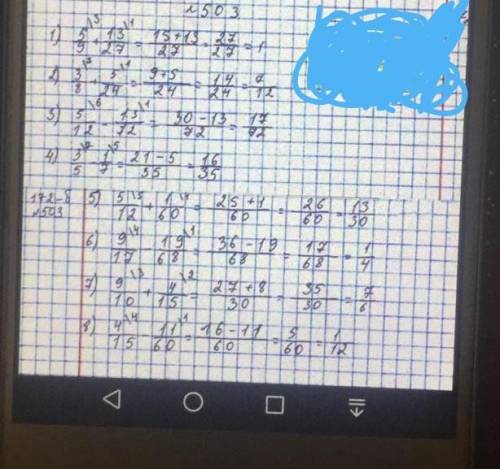 №503
1) 5/9 \3 + 13/27 \1 = 15+13/27 = 27/27 = 1
2) 3/8 \3 + 5/24 \1 = 9+5/24 = 14/24 = 7/12
3) 5/12 \6 - 13/72 \1 = 30-13/72 = 17/72
4) 3/5 \7 - 1/7 \5 = 21-5/35 = 16/35
172-б
№503
5) 5/12 \5 + 1/60 \1 = 25+1/60 = 26/60 = 13/30
6) 9/17 \4 - 19/68 \1 = 36-19/68 = 17/68 = 1/4
7) 9/10 \3 + 4/15 \2 = 27+8/30 = 35/30 = 7/6
8) 4/15 \4 - 11/60 \1 = 16-11/60 = 5/60 = 1/12